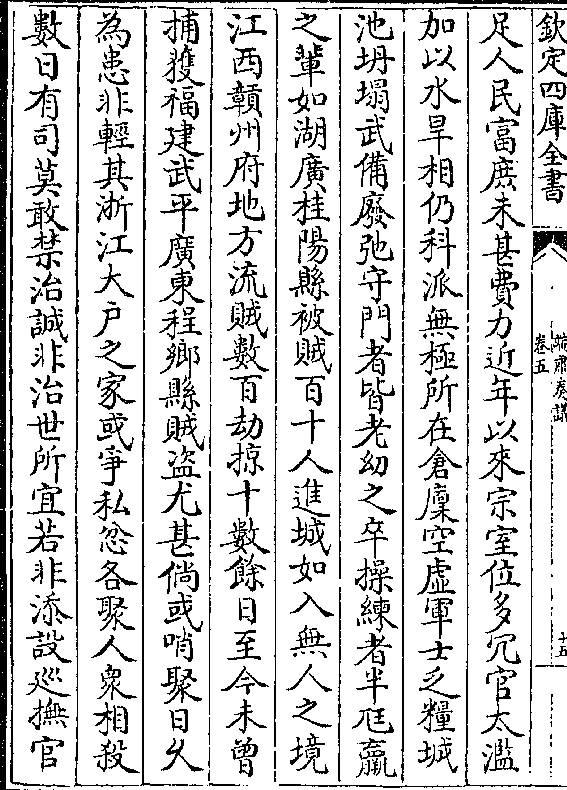 欽定四庫全書
端肅奏議
卷五
十五
足人民富庶未甚費力近年以來宗室位多冗官太濫
加以水旱相仍科派無極所在倉廩空虛軍士乏糧城
池坍塌武備廢弛守門者皆老幼之卒操練者半尫羸
之輩如湖廣桂陽縣被賊百十人進城如入無人之境
江西贛州府地方流賊數百劫掠十數餘日至今未曾
捕獲福建武平廣東程鄉縣賊盜尤甚倘或哨聚日乆
為患非輕其浙江大户之家或爭私忿各聚人衆相殺
數日有司莫敢禁治誠非治世所宜若非添設廵撫官